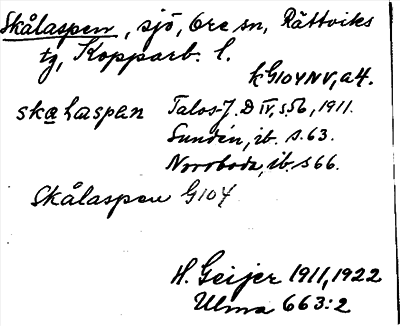 Skålaspen, sjö, Ore sn, Rättviks
tg, Kopparb. l.
k G104NV, a4.
skaLaspen Talos-J. D IV, s56, 1911.
Sundén, ib. s.63.
Norrboda, ib. s66.
Skålaspen G104
H. Geijer 1911, 1922
Ulma 663:2